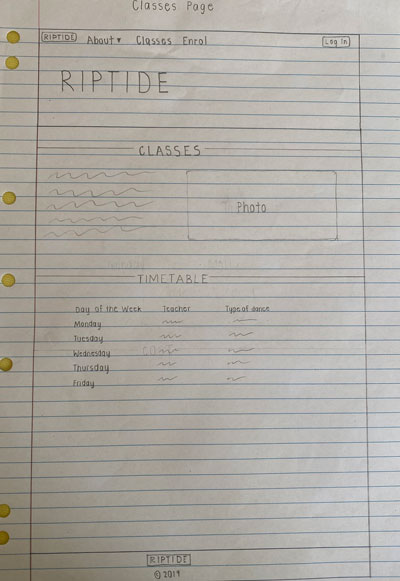 Classes Page
RIPTIDE About ▾ Classes Enrol Log In
RIPTIDE
CLASSES
Photo
TIMETABLE
Day of the Week Teacher Type of dance
Monday
Tuesday
Wednesday
Thursday
Friday
RIPTIDE
© 2019